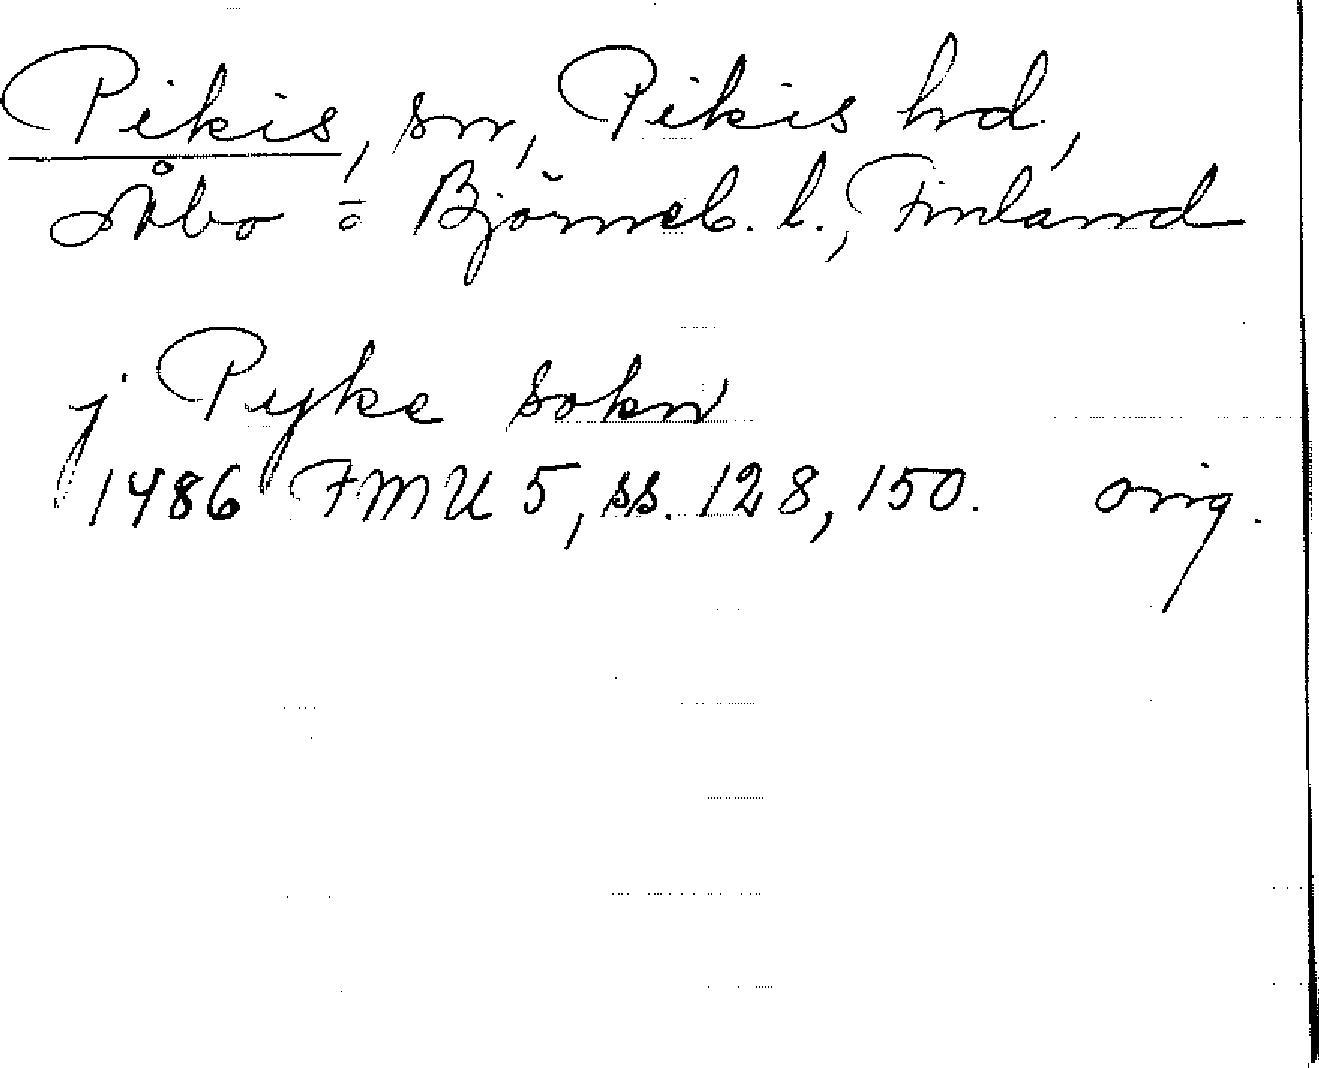 Pikis, sn, Pikis hd,
Åbo o Björneb. l., Finland
j Pyke sokn
1486 FMU 5, ss. 128, 150. orig.